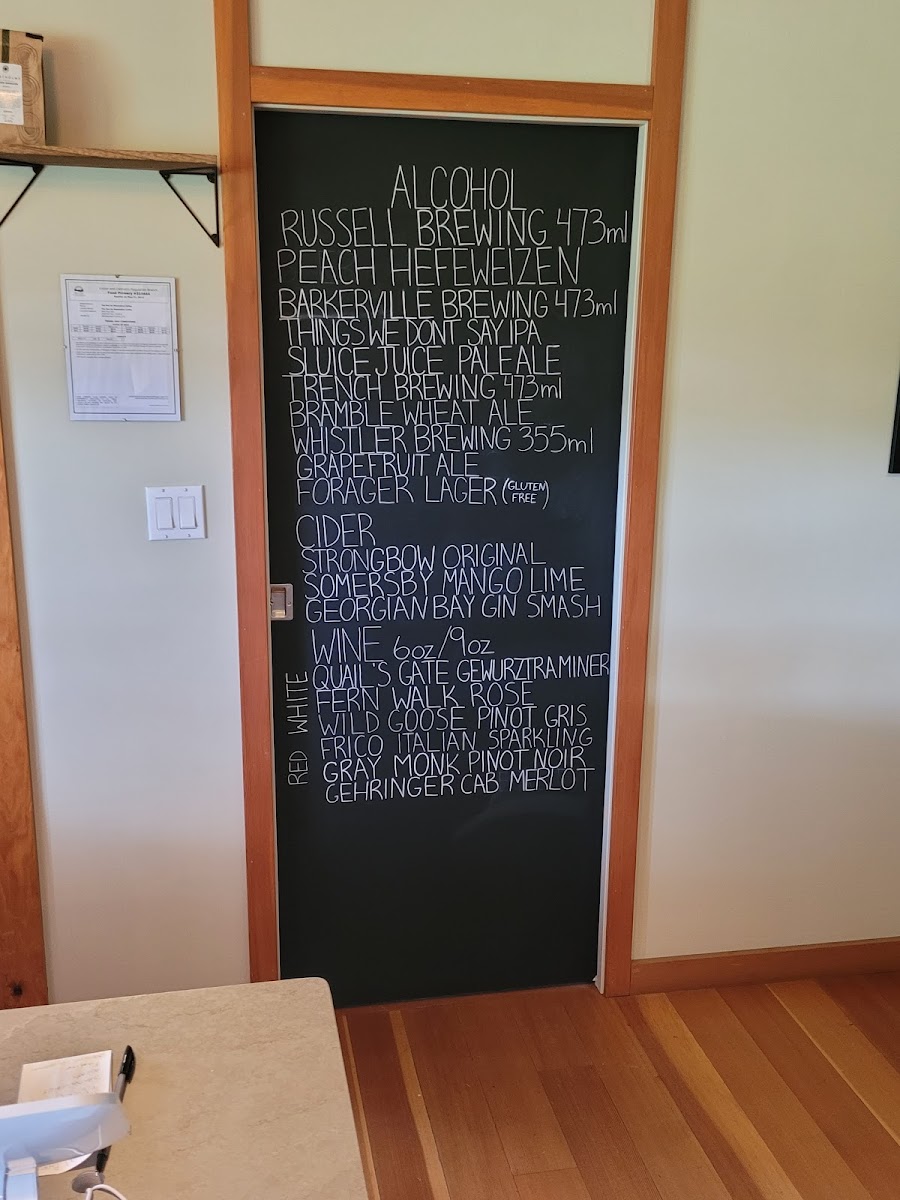 ALCOHOL
RUSSELL BREWING 473ml
PEACH HEFEWEIZEN
BARKERVILLE BREWING 473ml
THINGS WE DONT SAY IPA
SLUICE JUICE PALE ALE
TRENCH BREWING 473ml
BRAMBLE WHEAT ALE
WHISTLER BREWING 355ml
GRAPEFRUIT ALE
FORAGER LAGER (GLUTEN FREE)
CIDER
STRONGBOW ORIGINAL
SOMERSBY MANGO LIME
GEORGIAN BAY GIN SMASH
WINE 6oz/9oz
WHITE
QUAIL'S GATE GEWURZTRAMINER
FERN WALK ROSE
WILD GOOSE PINOT GRIS
FRICO ITALIAN SPARKLING
RED
GRAY MONK PINOT NOIR
GEHRINGER CAB MERLOT